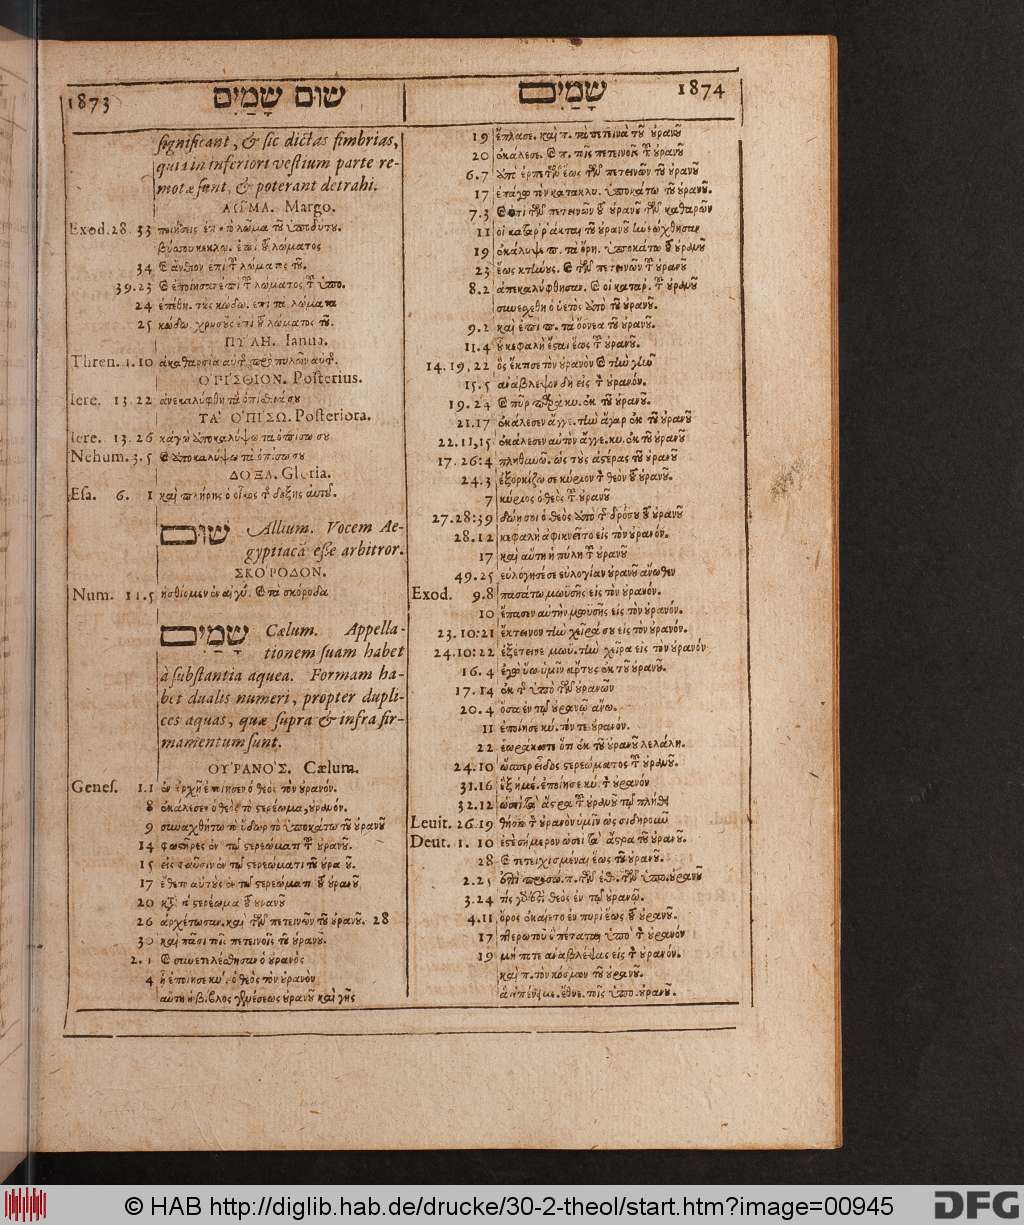 1873 שום שָׁמַיִם
significant, & sic dictas fimbrias,
quia in inferiori vestium parte re-
motæ sunt, & poterant detrahi.
ΛΩ͂ΜΑ. Margo.
Exod. 28. 33
34
39.23
24
25 κώδω. χρυσοῦς ἐπὶ τοῦ λώματος τοῦ.
ΠΥ΄ΛΗ. Ianua.
Thren. 1. 10
Ο᾿ΠΙ΄ΣΘΙΟΝ. Posterius.
Iere. 13. 22 ἀνεκαλύφθη τὰ ὀπίσθιά σου
ΤΑ᾿ Ο᾿ΠΙ΄ΣΩ. Posteriora.
Iere. 13. 26 κἀγὼ ἀποκαλύψω τὰ ὀπίσω σου
Nehum. 3. 5 καὶ ἀποκαλύψω τὰ ὀπίσω σου
ΔΟ΄ΞΑ. Gloria.
Esa. 6. 1 καὶ πλήρης ὁ οἶκος τῆς δόξης αὐτοῦ.
שום Allium. Vocem Ae-
gyptiacā esse arbitror.
ΣΚΟ΄ΡΟΔΟΝ.
Num. 11. 5 καὶ τὰ σκόροδα
שָׁמַיִם Cælum. Appella-
tionem suam habet
à substantia aquea. Formam ha-
bet dualis numeri, propter dupli-
ces aquas, quæ supra & infra fir-
mamentum sunt.
ΟΥ᾿ΡΑΝΟ΄Σ. Cælum.
Genes. 1.1 ἐν ἀρχῇ ἐποίησεν ὁ θεὸς τὸν οὐρανόν.
8 ἐκάλεσεν ὁ θεὸς τὸ στερέωμα, οὐρανόν.
9 συναχθήτω τὸ ὕδωρ τὸ ὑποκάτω τοῦ οὐρανοῦ
14 φωστῆρες ἐν τῷ στερεώματι τοῦ οὐρανοῦ.
15 εἰς φαῦσιν ἐν τῷ στερεώματι τοῦ οὐρανοῦ.
17 ἔθετο αὐτοὺς ἐν τῷ στερεώματι τοῦ οὐρανοῦ
20 στερέωμα τοῦ οὐρανοῦ
26 ἀρχέτωσαν. καὶ τῶν πετεινῶν τοῦ οὐρανοῦ. 28
30 καὶ πᾶσι τοῖς πετεινοῖς τοῦ οὐρανοῦ.
2. 1 καὶ συνετελέσθησαν ὁ οὐρανὸς
4 ᾗ ἐποίησε κύ. ὁ θεὸς τὸν οὐρανὸν
αὕτη ἡ βίβλος γενέσεως οὐρανοῦ καὶ γῆς
שָׁמַיִם 1874
19 ἔπλασε. καὶ π. τὰ πετεινὰ τοῦ οὐρανοῦ
20 ἐκάλεσε. καὶ π. τοῖς πετεινοῖς τοῦ οὐρανοῦ
6. 7 ἀπὸ ἑρπετῶν ἕως τῶν πετεινῶν τοῦ οὐρανοῦ
17 ἐπάγω τὸν κατακλυ. ὑποκάτω τοῦ οὐρανοῦ.
7. 3 τῶν πετεινῶν τοῦ οὐρανοῦ τῶν καθαρῶν
11 οἱ καταρράκται τοῦ οὐρανοῦ ἠνεῴχθησαν
19 ἐκάλυψε π. τὰ ὄρη. ὑποκάτω τοῦ οὐρανοῦ
23 ἕως κτήνους. καὶ τῶν πετεινῶν τοῦ οὐρανοῦ
8. 2 ἀπεκαλύφθησαν. καὶ οἱ καταρ. τοῦ οὐρανοῦ
συνεσχέθη ὁ ὑετὸς ἀπὸ τοῦ οὐρανοῦ.
9. 2 καὶ ἐπὶ π. τὰ ὄρνεα τοῦ οὐρανοῦ.
11. 4 οὗ κεφαλὴ ἔσται ἕως τοῦ οὐρανοῦ.
14. 19, 22 ὃς ἔκτισε τὸν οὐρανὸν καὶ τὴν γῆν
15. 5 ἀνάβλεψον δὴ εἰς τὸν οὐρανόν.
19. 24 καὶ πῦρ παρὰ κυ. ἐκ τοῦ οὐρανοῦ.
21. 17 ἐκάλεσεν ἄγγε. τὴν ἄγαρ ἐκ τοῦ οὐρανοῦ
22. 11, 15 ἐκάλεσεν αὐτὸν ἄγγε. κυ. ἐκ τοῦ οὐρανοῦ
17. 26:4 πληθυνῶ. ὡς τοὺς ἀστέρας τοῦ οὐρανοῦ
24. 3 ἐξορκίζω σε κύριον τὸν θεὸν τοῦ οὐρανοῦ.
7 κύριος ὁ θεὸς τοῦ οὐρανοῦ
27. 28:39 δῴη σοι ὁ θεὸς ἀπὸ τῆς δρόσου τοῦ οὐρανοῦ
28. 12 κεφαλὴ ἀφικνεῖτο εἰς τὸν οὐρανόν.
17 καὶ αὕτη ἡ πύλη τοῦ οὐρανοῦ
49. 25 εὐλόγησέ σε εὐλογίαν οὐρανοῦ ἄνωθεν
Exod. 9. 8 πασάτω μωϋσῆς εἰς τὸν οὐρανόν.
10 ἔπασεν αὐτὴν μωυσῆς εἰς τὸν οὐρανόν.
23. 10:21 ἔκτεινον τὴν χεῖρά σου εἰς τὸν οὐρανόν.
24. 10:22 ἐξέτεινε μωϋ. τὴν χεῖρα εἰς τὸν οὐρανόν
16. 4 ἐγὼ ὕω ὑμῖν ἄρτους ἐκ τοῦ οὐρανοῦ.
17. 14 ἐκ τῆς ὑπὸ τῶν οὐρανῶν
20. 4 ὅσα ἐν τῷ οὐρανῷ ἄνω.
11 ἐποίησε κύ. τόν τε οὐρανόν.
22 ἑωράκατε ὅτι ἐκ τοῦ οὐρανοῦ λελάλη.
24. 10 ὥσπερ εἶδος στερεώματος τοῦ οὐρανοῦ.
31. 16 ἓξ ἡμέ. ἐποίησε κύ. τὸν οὐρανόν
32. 12 ὡσεὶ τὰ ἄστρα τοῦ οὐρανοῦ τῷ πλήθει
Levit. 26 19 θήσω τὸν οὐρανὸν ὑμῖν ὡς σιδηροῦν
Deut. 1. 10 ἐστὲ σήμερον ὡσεὶ τὰ ἄστρα τοῦ οὐρανοῦ.
28 καὶ τετειχισμέναι ἕως τοῦ οὐρανοῦ.
2. 25 ἐπὶ πρόσω. π. τῶν ἐθ. τῶν ὑπο. οὐρανοῦ
3. 24 τίς γάρ ἐστι θεὸς ἐν τῷ οὐρανῷ.
4. 11 ὄρος ἐκαίετο ἐν πυρὶ ἕως τοῦ οὐρανοῦ.
17 πτερωτοῦ ὃ πέταται ὑπὸ τὸν οὐρανόν
19 μή ποτε ἀναβλέψας εἰς τὸν οὐρανόν.
καὶ π. τὸν κόσμον τοῦ οὐρανοῦ.
ἃ ἀπένειμε. ἔθνε. τοῖς ὑπο. οὐρανοῦ.
© HAB http://diglib.hab.de/drucke/30-2-theol/start.htm?image=00945
DFG